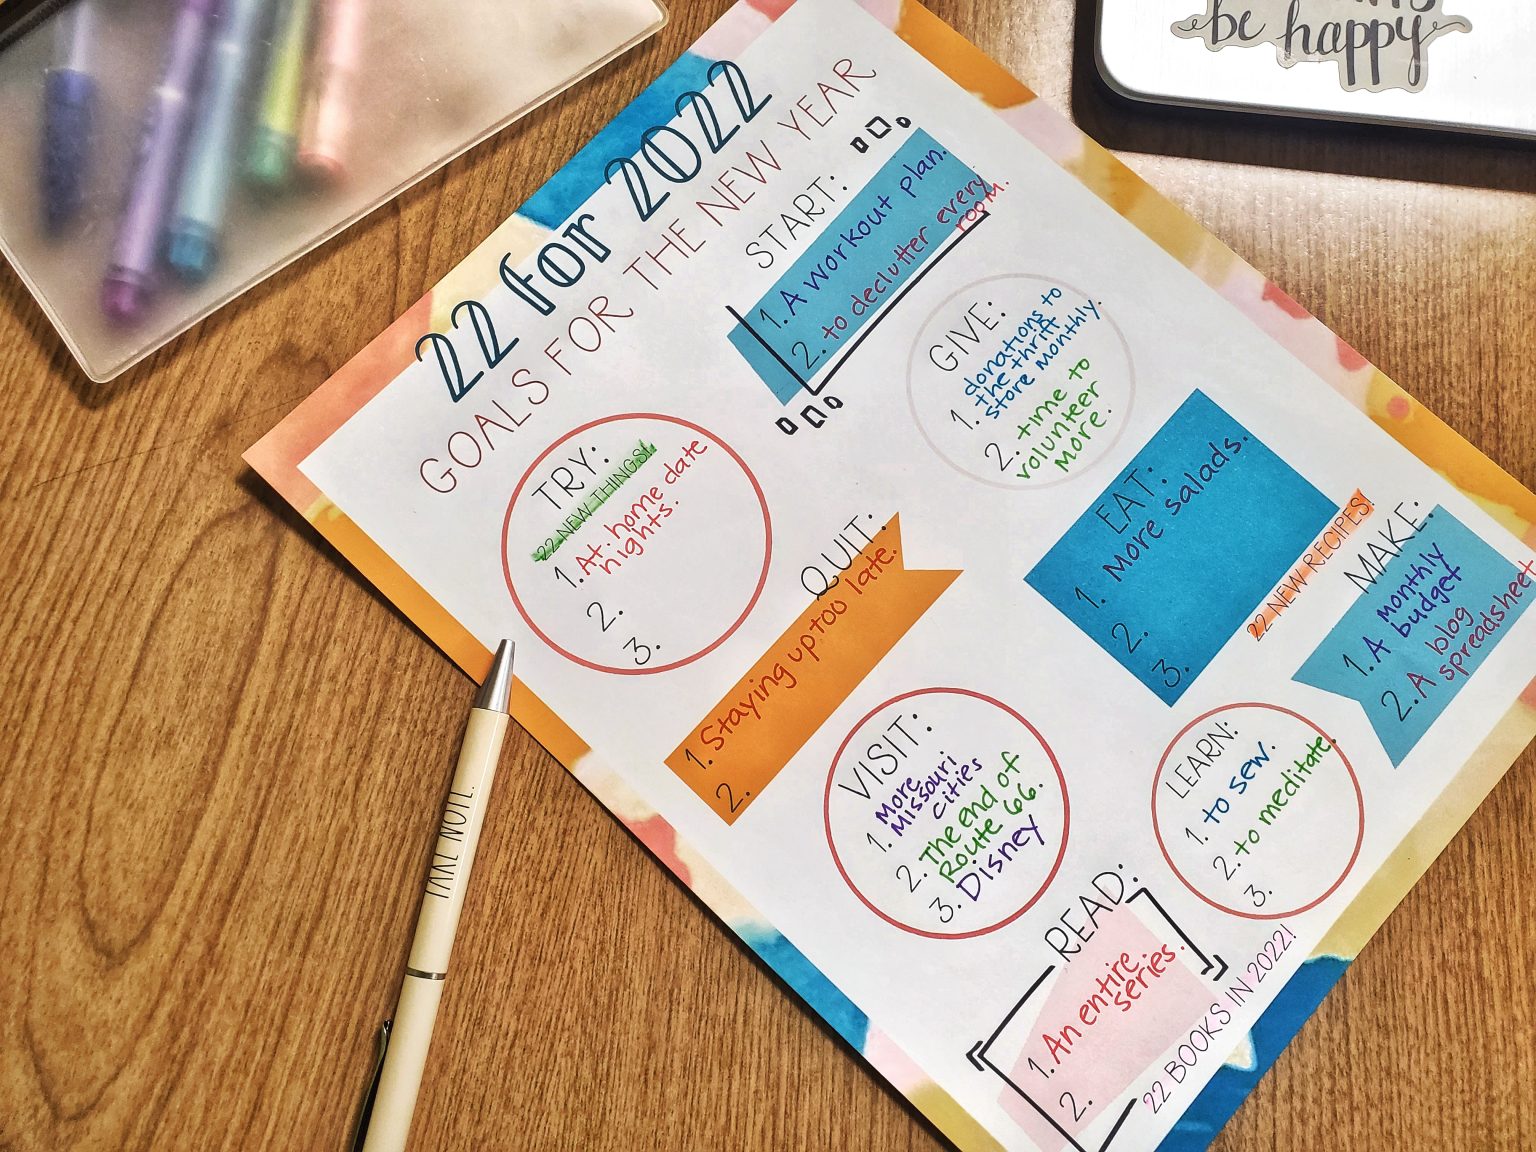 be happy
22 for 2022
GOALS FOR THE NEW YEAR
START:
1. A workout plan.
2. to declutter every
room.
GIVE:
1. donations to
the thrift
store monthly.
2. time to
volunteer
more.
TRY:
22 NEW THINGS!
1. At home date
nights.
2.
3.
QUIT:
1. Staying up too late.
2.
EAT:
1. More salads.
2.
3.
22 NEW RECIPES!
MAKE:
1. A monthly
budget
2. A blog
spreadsheet
VISIT:
1. More
Missouri
cities
2. The end of
Route 66.
3. Disney
LEARN:
1. to sew.
2. to meditate.
3.
READ:
1. An entire
series.
2.
22 BOOKS IN 2022!
TAKE NOTE.